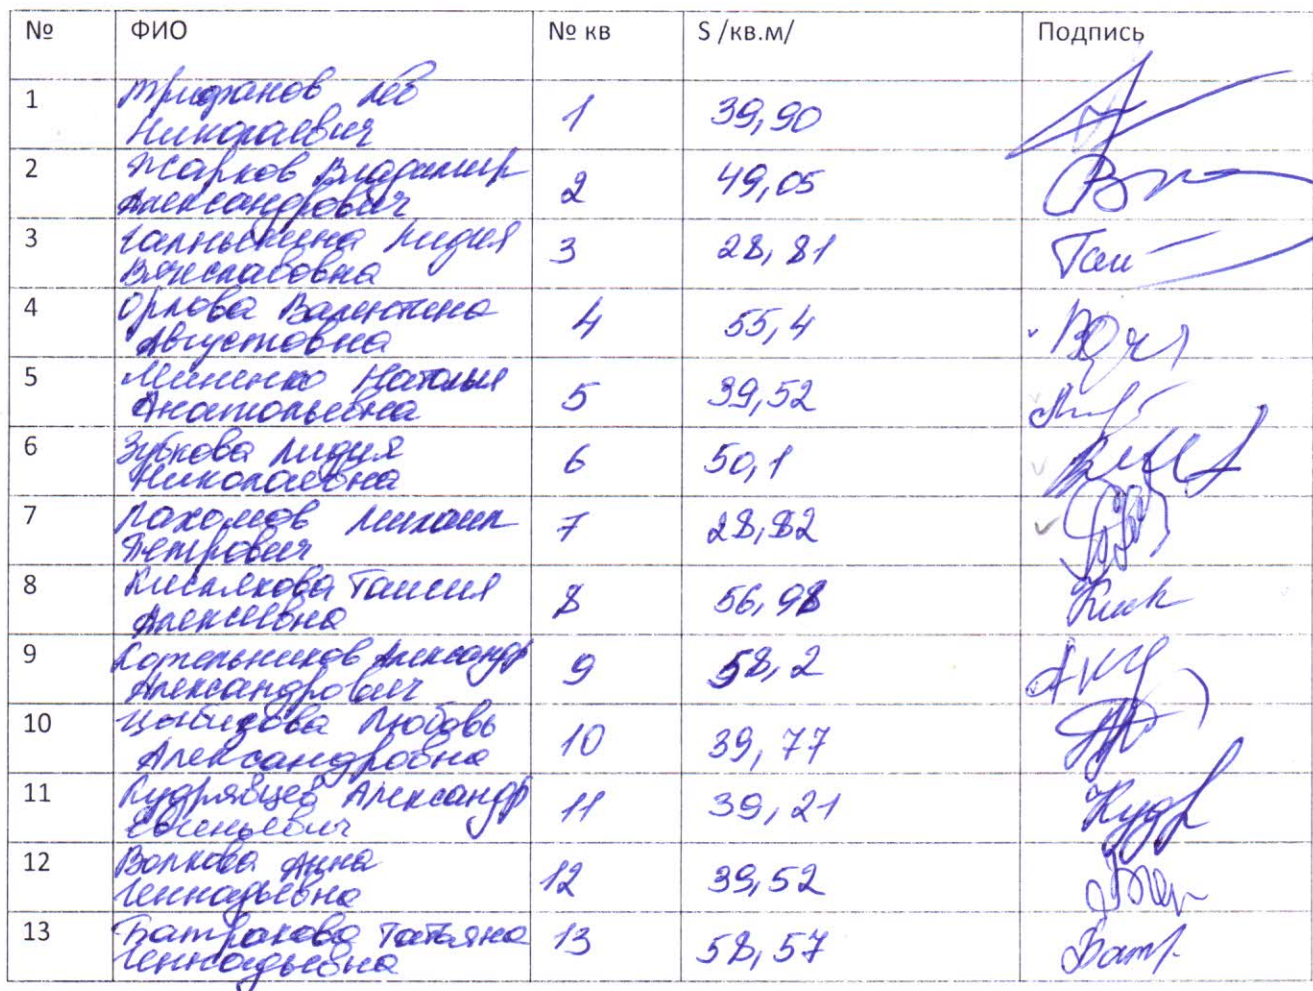 № ФИО № кв S /кв.м/ Подпись
1 Трифанов Лев
Николаевич 1 39,90
2 Жарков Владимир
Александрович 2 49,05
3 Лидия
Вячеславовна 3 28,81
4 Орлова Валентина
Августовна 4 55,4
5 Миненко Наталья
Анатольевна 5 39,52
6 Зубкова Лидия
Николаевна 6 50,1
7 Пахомов Михаил
Петрович 7 28,82
8 Таисия
Алексеевна 8 56,98
9 Котельников Александр
Александрович 9 58,2
10 Любовь
Александровна 10 39,77
11 Кудрявцев Александр
Евгеньевич 11 39,21
12 Волкова Анна
Геннадьевна 12 39,52
13 Батракова Татьяна
Геннадьевна 13 58,57